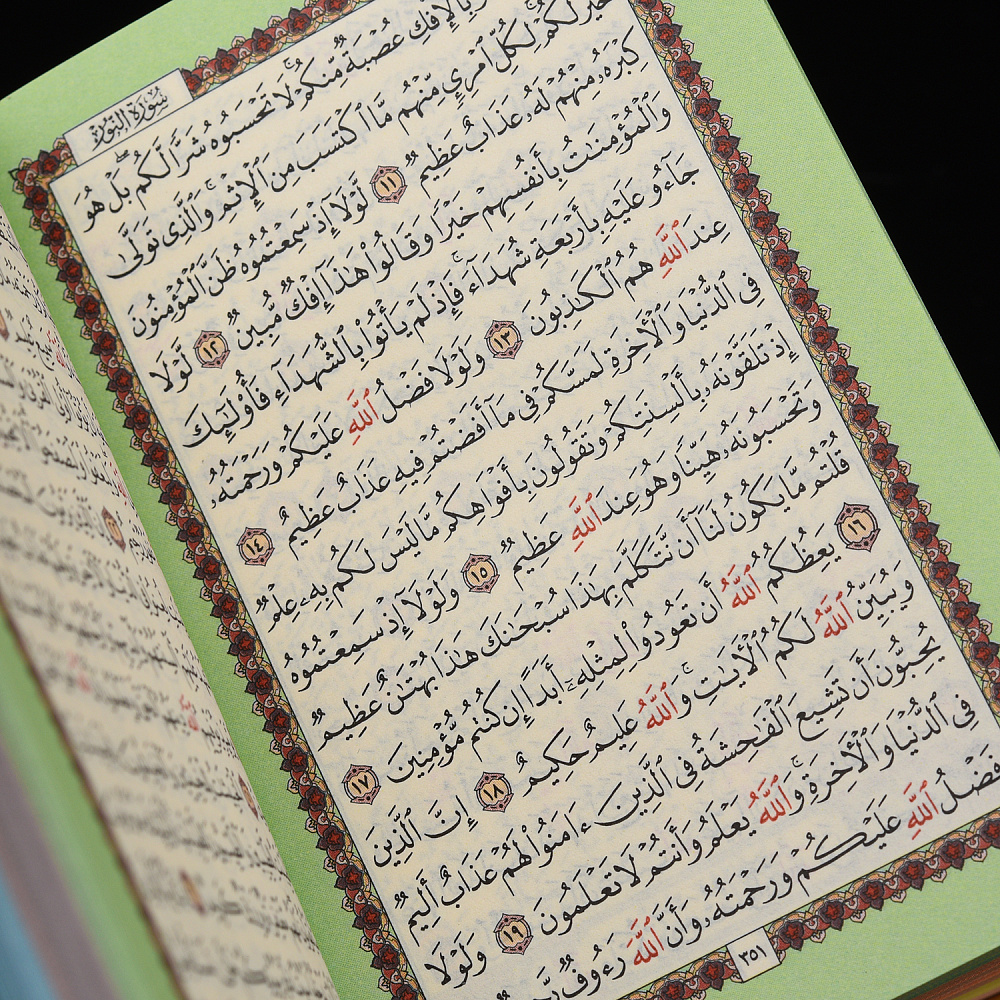 سُورَةُ النُّورِ
بِٱلْإِفْكِ عُصْبَةٌ مِّنكُمْ ۚ لَا تَحْسَبُوهُ شَرًّا لَّكُم ۖ بَلْ هُوَ
خَيْرٌ لَّكُمْ ۚ لِكُلِّ ٱمْرِئٍ مِّنْهُم مَّا ٱكْتَسَبَ مِنَ ٱلْإِثْمِ ۚ وَٱلَّذِى تَوَلَّىٰ
كِبْرَهُۥ مِنْهُمْ لَهُۥ عَذَابٌ عَظِيمٌ ١١ لَّوْلَآ إِذْ سَمِعْتُمُوهُ ظَنَّ ٱلْمُؤْمِنُونَ
وَٱلْمُؤْمِنَٰتُ بِأَنفُسِهِمْ خَيْرًا وَقَالُوا۟ هَٰذَآ إِفْكٌ مُّبِينٌ ١٢ لَّوْلَا
جَآءُو عَلَيْهِ بِأَرْبَعَةِ شُهَدَآءَ ۚ فَإِذْ لَمْ يَأْتُوا۟ بِٱلشُّهَدَآءِ فَأُو۟لَٰٓئِكَ
عِندَ ٱللَّهِ هُمُ ٱلْكَٰذِبُونَ ١٣ وَلَوْلَا فَضْلُ ٱللَّهِ عَلَيْكُمْ وَرَحْمَتُهُۥ
فِى ٱلدُّنْيَا وَٱلْءَاخِرَةِ لَمَسَّكُمْ فِى مَآ أَفَضْتُمْ فِيهِ عَذَابٌ عَظِيمٌ ١٤
إِذْ تَلَقَّوْنَهُۥ بِأَلْسِنَتِكُمْ وَتَقُولُونَ بِأَفْوَاهِكُم مَّا لَيْسَ لَكُم بِهِۦ عِلْمٌ
وَتَحْسَبُونَهُۥ هَيِّنًا وَهُوَ عِندَ ٱللَّهِ عَظِيمٌ ١٥ وَلَوْلَآ إِذْ سَمِعْتُمُوهُ
قُلْتُم مَّا يَكُونُ لَنَآ أَن نَّتَكَلَّمَ بِهَٰذَا سُبْحَٰنَكَ هَٰذَا بُهْتَٰنٌ عَظِيمٌ
١٦ يَعِظُكُمُ ٱللَّهُ أَن تَعُودُوا۟ لِمِثْلِهِۦٓ أَبَدًا إِن كُنتُم مُّؤْمِنِينَ ١٧
وَيُبَيِّنُ ٱللَّهُ لَكُمُ ٱلْءَايَٰتِ ۚ وَٱللَّهُ عَلِيمٌ حَكِيمٌ ١٨ إِنَّ ٱلَّذِينَ
يُحِبُّونَ أَن تَشِيعَ ٱلْفَٰحِشَةُ فِى ٱلَّذِينَ ءَامَنُوا۟ لَهُمْ عَذَابٌ أَلِيمٌ
فِى ٱلدُّنْيَا وَٱلْءَاخِرَةِ ۚ وَٱللَّهُ يَعْلَمُ وَأَنتُمْ لَا تَعْلَمُونَ ١٩ وَلَوْلَا
فَضْلُ ٱللَّهِ عَلَيْكُمْ وَرَحْمَتُهُۥ وَأَنَّ ٱللَّهَ رَءُوفٌ
٣٥١